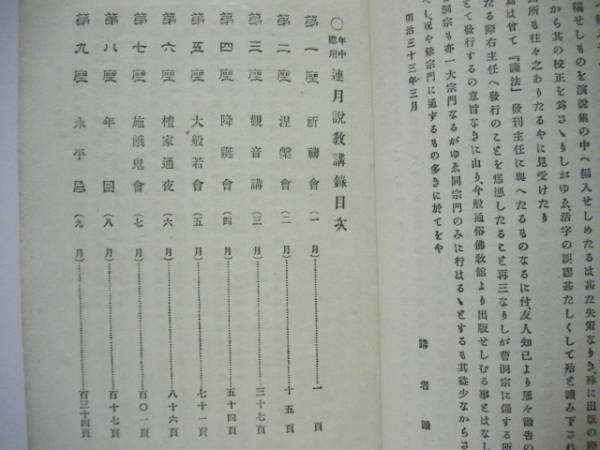 稿せしものを演説集の中へ編入せしめたるは甚た失策なりき、殊に出版の際
から其の校正を爲さゝりしがゆゑ、活字の誤謬甚たしくして殆と讀み下され
箇所も往々之ありたるやに見受けたり
爲は曾て『講法』發刊主任に與へたるものなるに付友人知已より屢々勸告の
たる際右主任へ發行のことを慫慂したること再三なりしが曹洞宗に偏する所
とて發行するの意旨なきに由り、今般通俗佛敎館より出版せしむる事とはなし
洞宗も亦一大宗門なるがゆゑ同宗門のみに行はるゝとするも其益少なからさ
へし、况や餘宗門に通するもの多きに於てをや
明治三十三年三月
講者識
◯年中應用 連月說敎講錄目次
第一座 祈禱會(一月) 一頁
第二座 涅槃會(二月) 十五頁
第三座 觀音講(三月) 三十七頁
第四座 降誕會(四月) 五十四頁
第五座 大般若會(五月) 七十一頁
第六座 檀家通夜(六月) 八十六頁
第七座 施餓鬼會(七月) 百〇一頁
第八座 年回(八月) 百十七頁
第九座 永平忌(九月) 百三十四頁